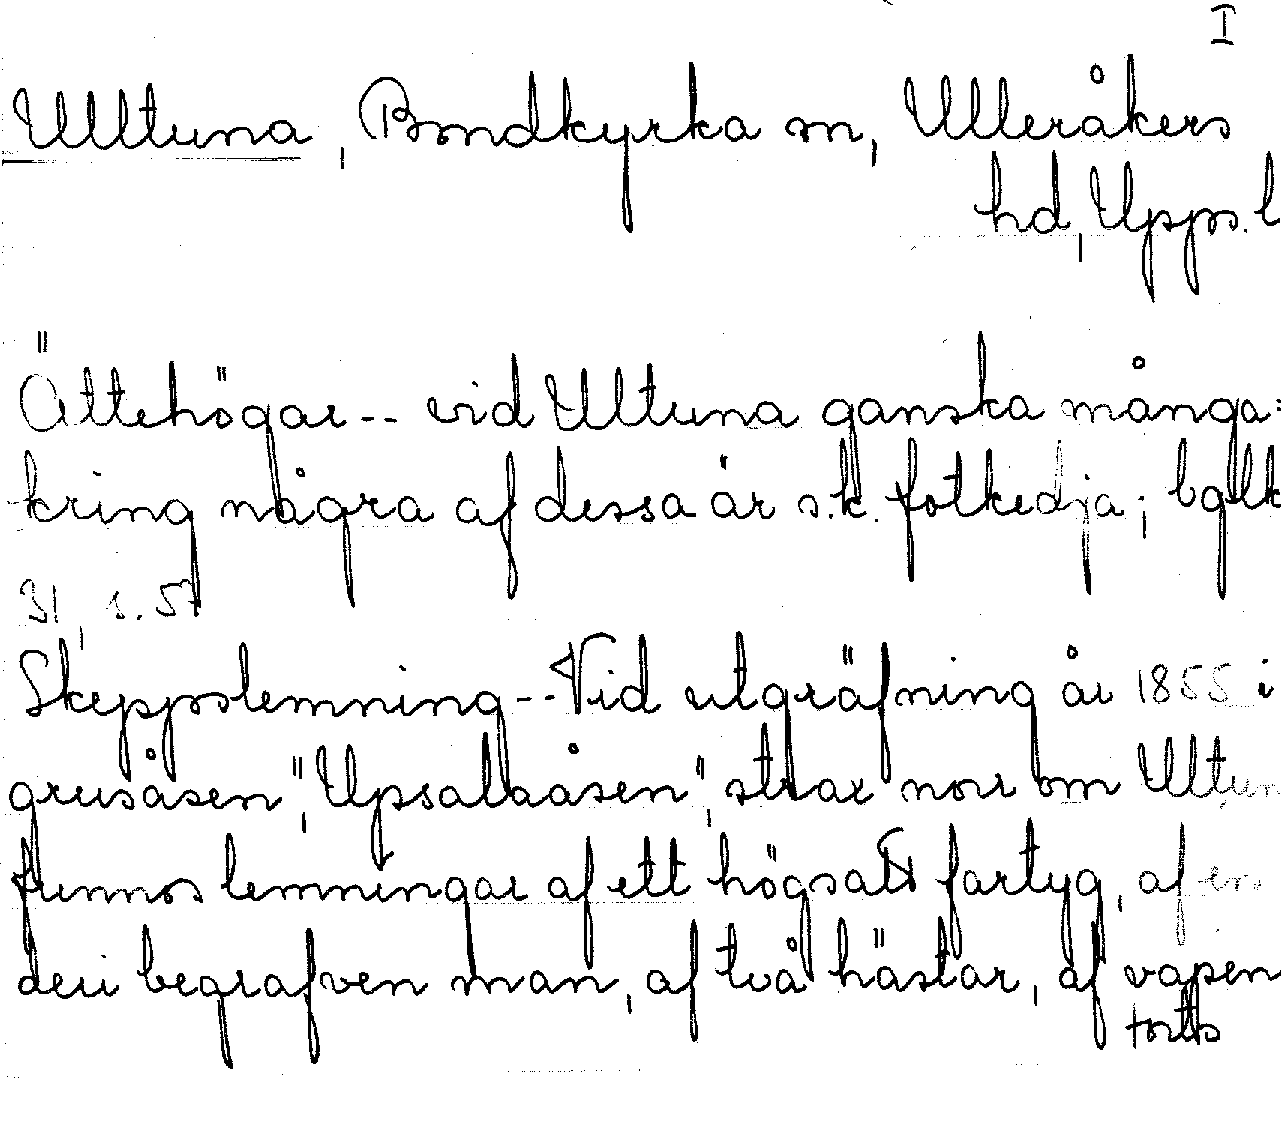 I
Ultuna, Bondkyrka sn, Ulleråkers
hd, Upps. l
Ättehögar -- vid Ultuna ganska många:
kring några af dessa är s.k. fotkedja; bglk
31, s. 57
Skeppslemning -- Vid utgräfning år 1855 i
grusåsen, "Upsalaåsen", strax norr om Ultun
funnos lemningar af ett högsatt fartyg, af en
deri begrafven man, af två hästar, af vapen
forts